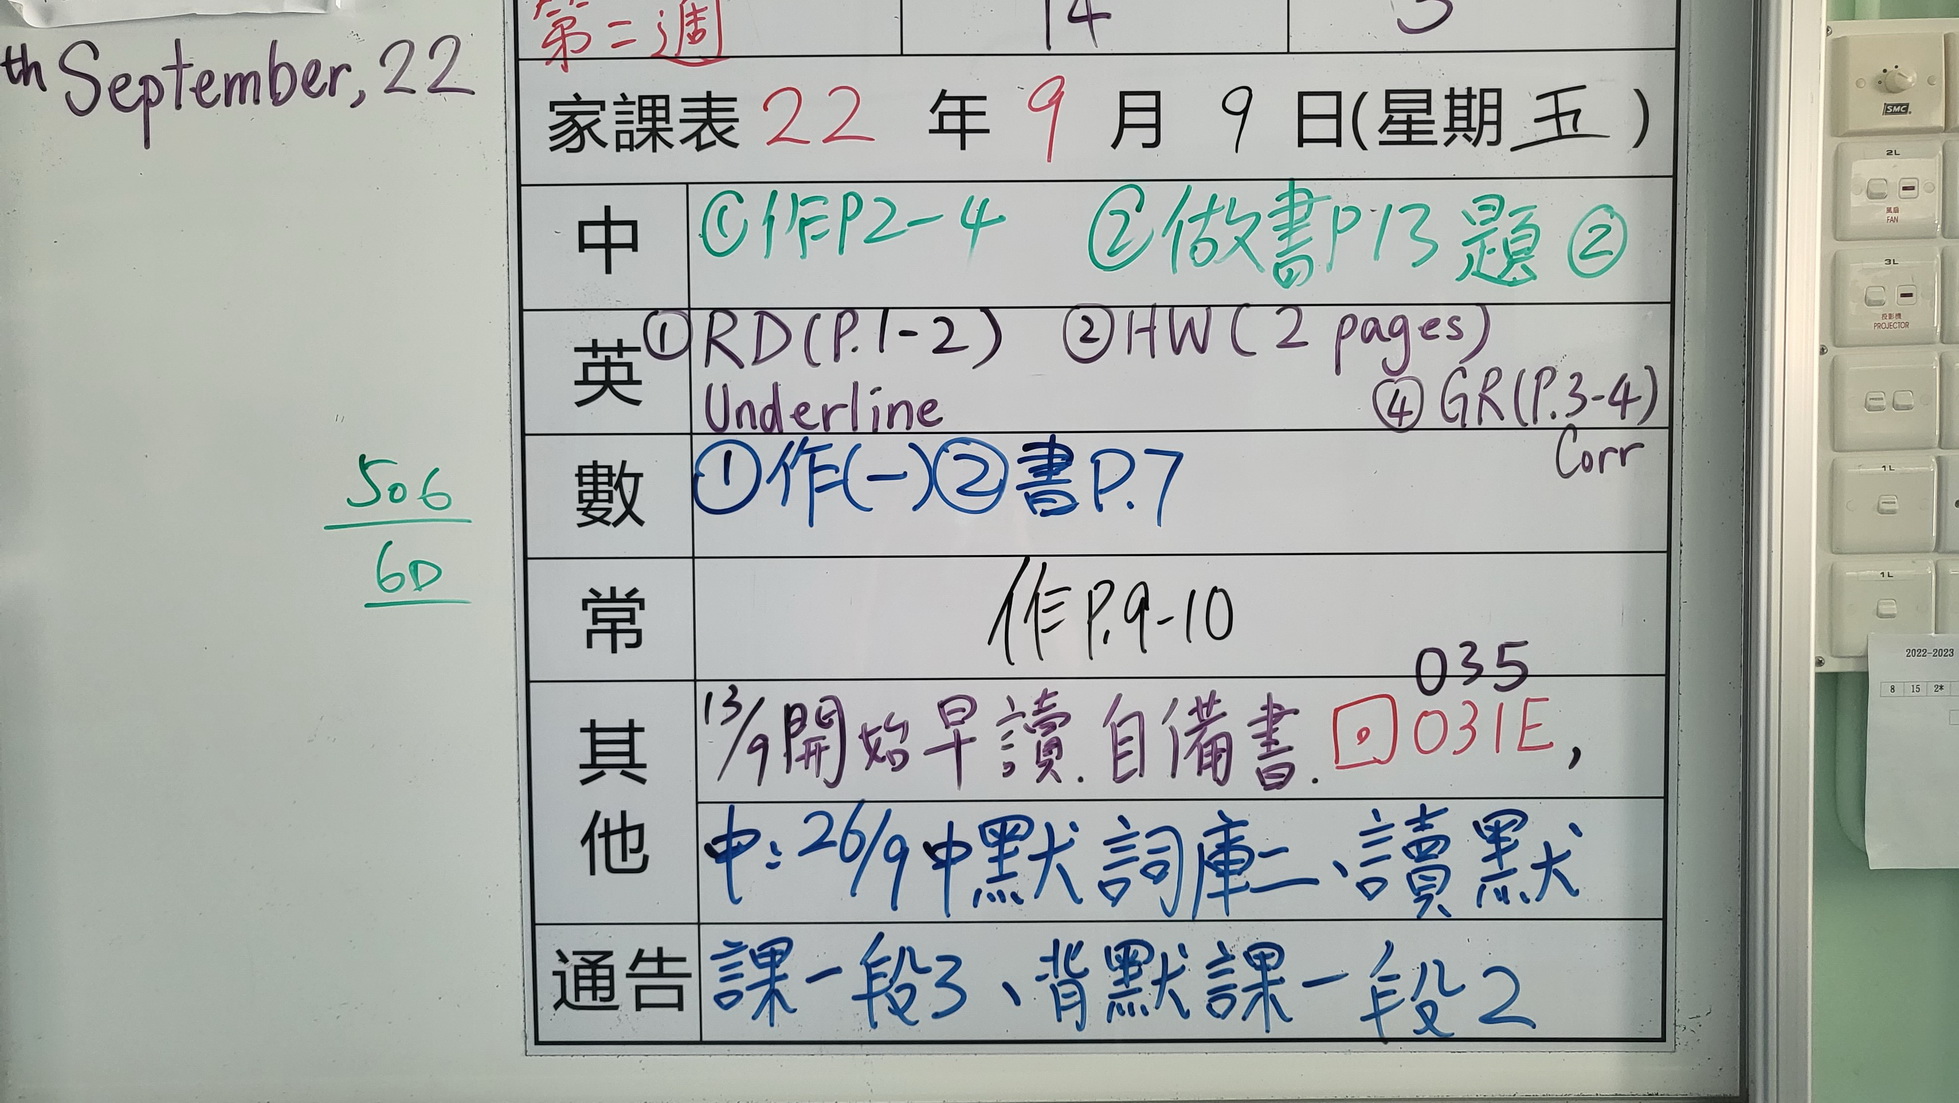 第二週 14 3
th September, 22
家課表 22 年 9 月 9 日(星期五)
中 ①作P2-4 ②做書P13題②
英 ①RD(P.1-2) ②HW(2 pages)
Underline ④GR(P.3-4)
Corr
數 ①作(一)②書P.7
506
6D
常 作P.9-10
035
其他 13/9開始早讀.自備書. 回031E,
中:26/9中默詞庫二、讀默
通告 課一段3、背默課一段2
SMC
2L
風扇
FAN
3L
投影機
PROJECTOR
1L
1L
2022-2023
8 15 2*